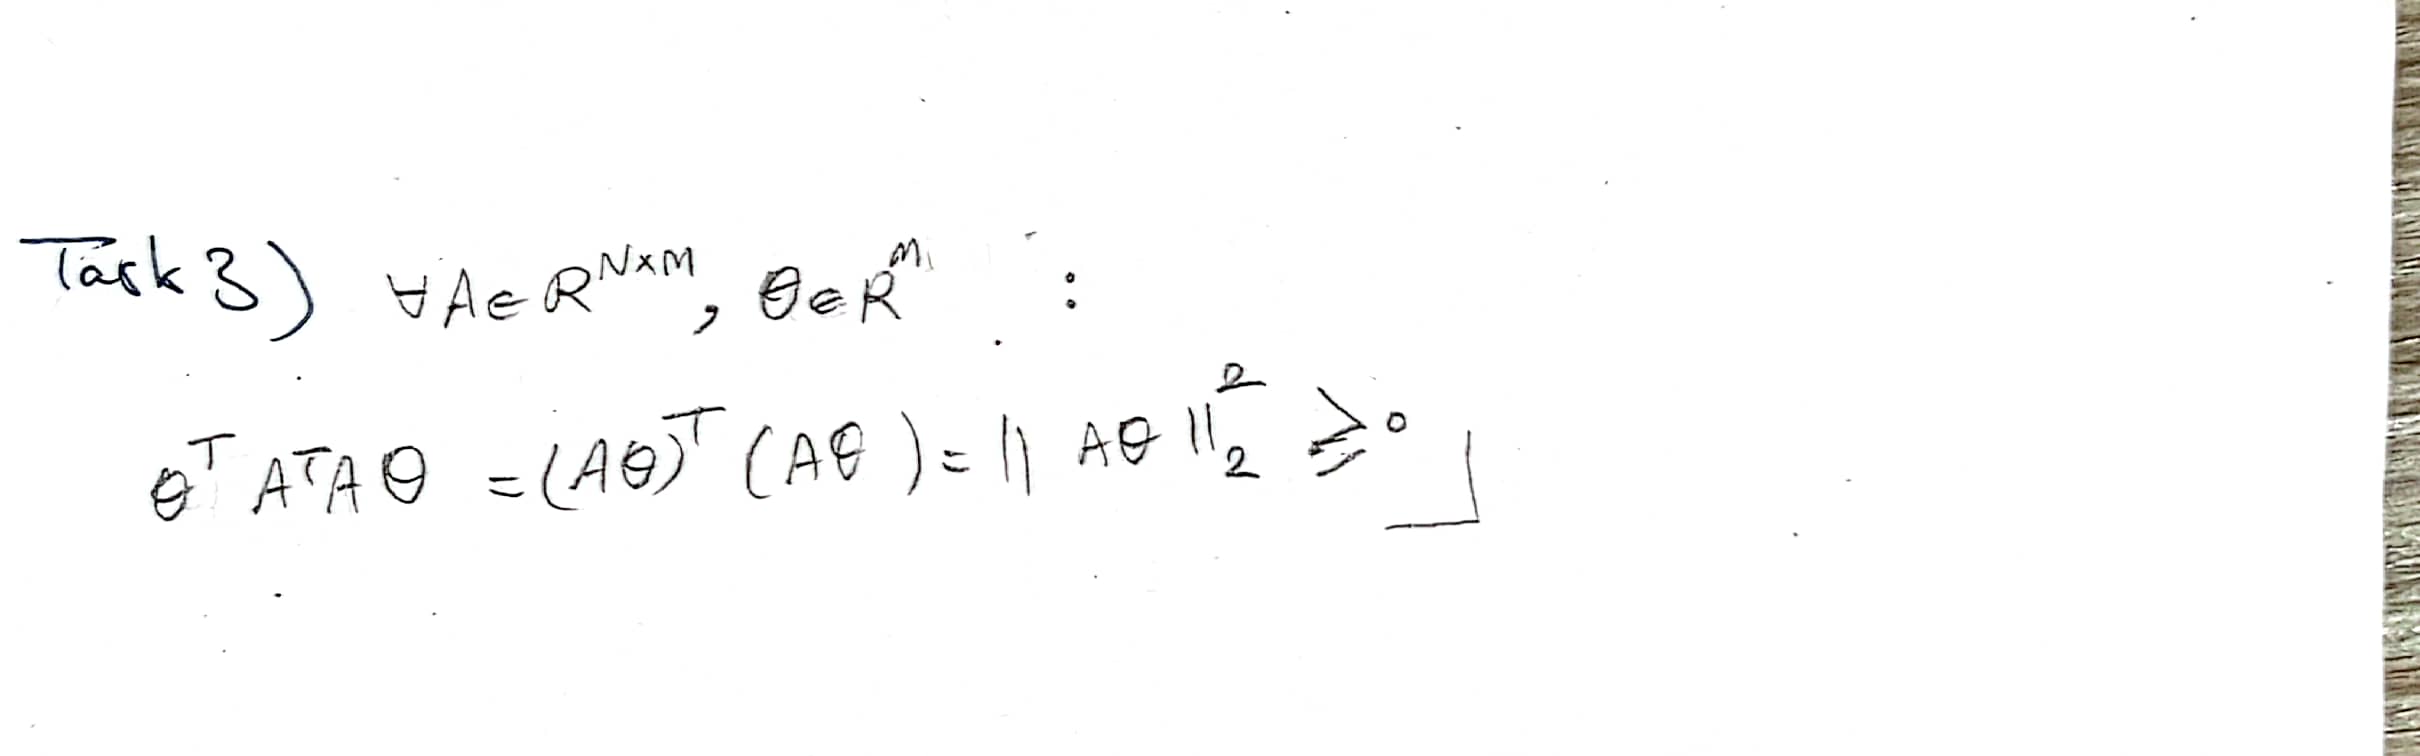 Task 3) ∀ A ∈ R^{N×M}, θ ∈ R^{M} :
θ^T A^T A θ = (Aθ)^T (Aθ) = || Aθ ||_2^2 ≥ 0